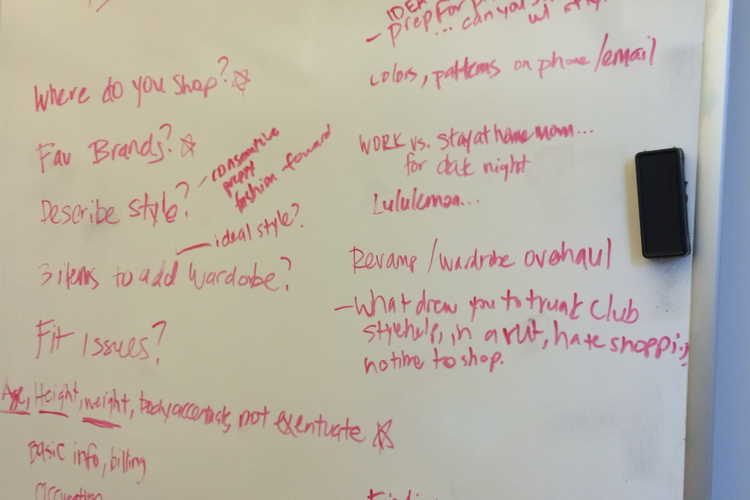 Where do you shop? ☆
Fav Brands? ☆
Describe style? - conservative
preppy
fashion forward
- ideal style?
3 items to add wardrobe?
Fit Issues?
Age, Height, weight, body accentuate, not
Basic info, billing
Occupation
IDEA
- prep for
... can you
w/
colors, patterns on phone/email
WORK vs. stay at home mom...
for date night
Lululemon...
Revamp/wardrobe ovehaul
- What drew you to trunk Club
style help, in a rut, hate shopping
no time to shop.